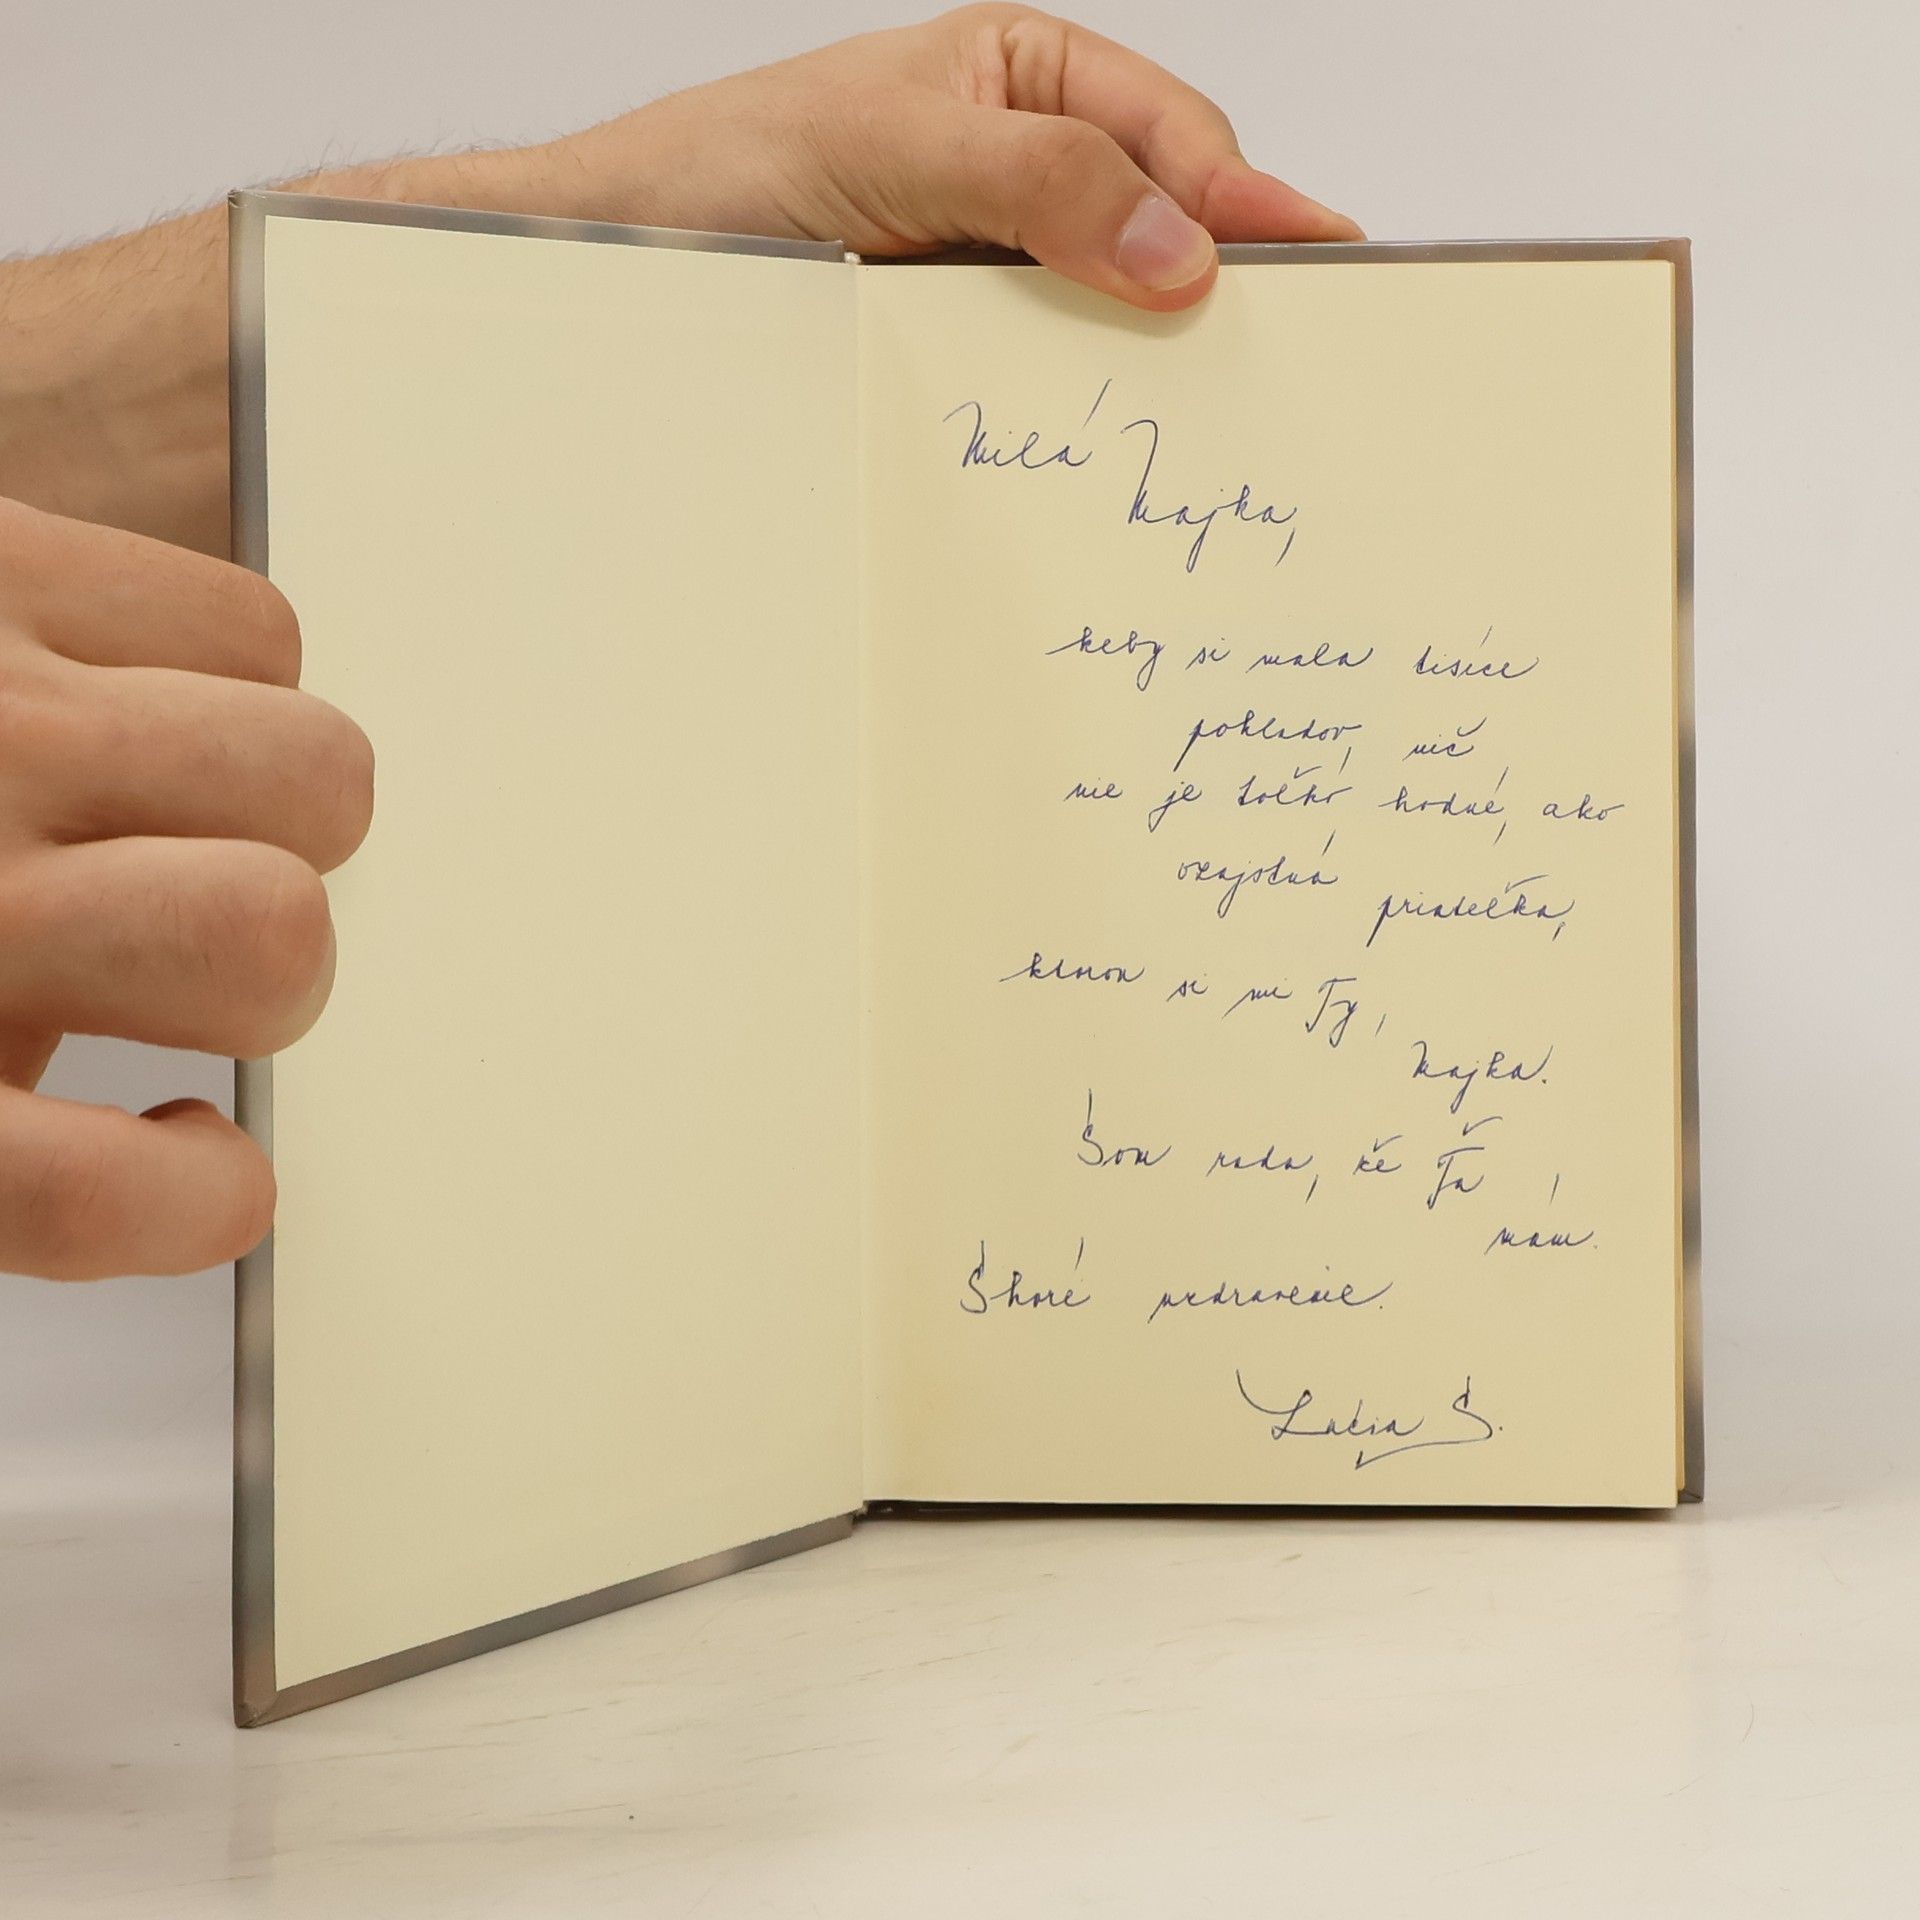 Milá
Majka,
keby si mala tisíce
pokladov, nič
nie je toľkó hodné, ako
ozajstná
priateľka,
ktorou si mi Ty,
Majka.
Som rada, že Ťa
mám.
Skoré uzdravenie.
Lucia S.